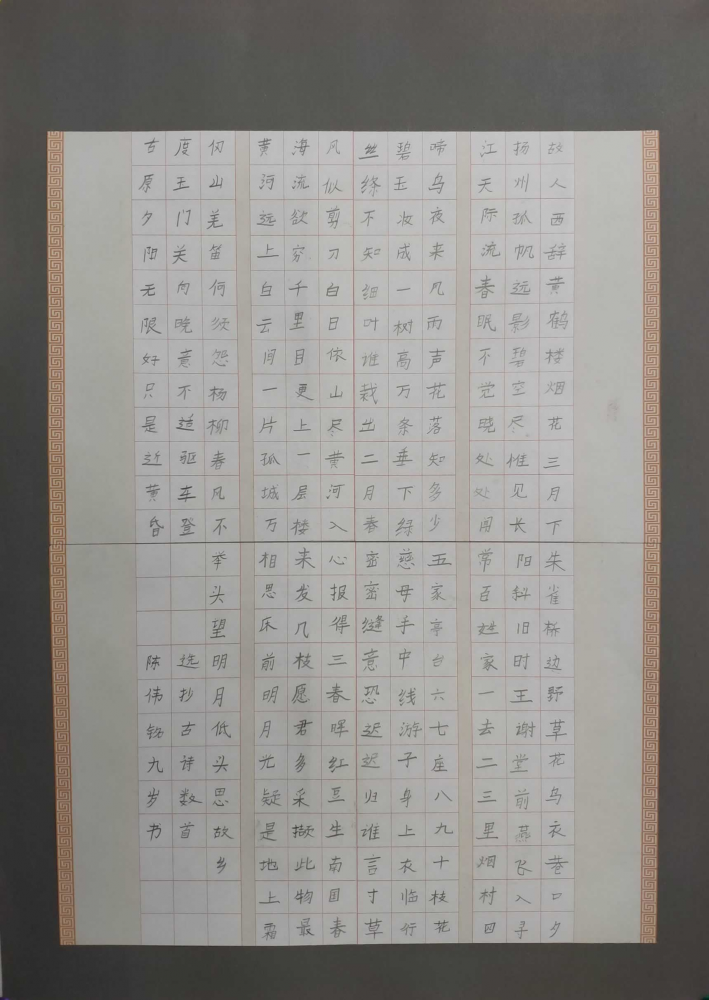 故人西辞黄鹤楼烟花三月下
扬州孤帆远影碧空尽惟见长
江天际流春眠不觉晓处处闻
啼鸟夜来风雨声花落知多少
碧玉妆成一树高万条垂下绿
丝绦不知细叶谁裁出二月春
风似剪刀白日依山尽黄河入
海流欲穷千里目更上一层楼
黄河远上白云间一片孤城万
仞山羌笛何须怨杨柳春风不
度玉门关向晚意不适驱车登
古原夕阳无限好只是近黄昏
朱雀桥边野草花乌衣巷口夕
阳斜旧时王谢堂前燕飞入寻
常百姓家一去二三里烟村四
五家亭台六七座八九十枝花
慈母手中线游子身上衣临行
密密缝意恐迟迟归谁言寸草
心报得三春晖红豆生南国春
来发几枝愿君多采撷此物最
相思床前明月光疑是地上霜
举头望明月低头思故乡
选抄古诗数首
陈伟九岁书